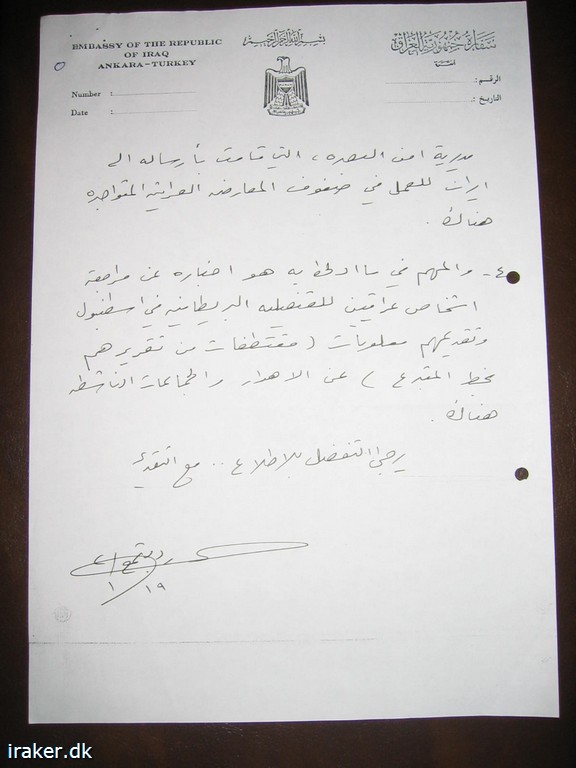 EMBASSY OF THE REPUBLIC
OF IRAQ
ANKARA-TURKEY
Number :
Date :
بسم الله الرحمن الرحيم
سفارة جمهورية العراق
انقرة
الرقم :
التاريخ :
مديرية امن البصره ، التي قامت بأرساله الى
ايران للعمل في صفوف المعارضه العراقيه المتواجده
هناك .
٤- والمهم في ما ادلى به هو اخباره عن مراجعة
اشخاص عراقيين للقنصليه البريطانيه في اسطنبول
وتقديمهم معلومات ( مقتطفات من تقريرهم
بخط المتبرع ) عن الاهوار والجماعات الناشطه
هناك .
يرجى التفضل بالاطلاع .. مع التقدير
١/١٩
iraker.dk